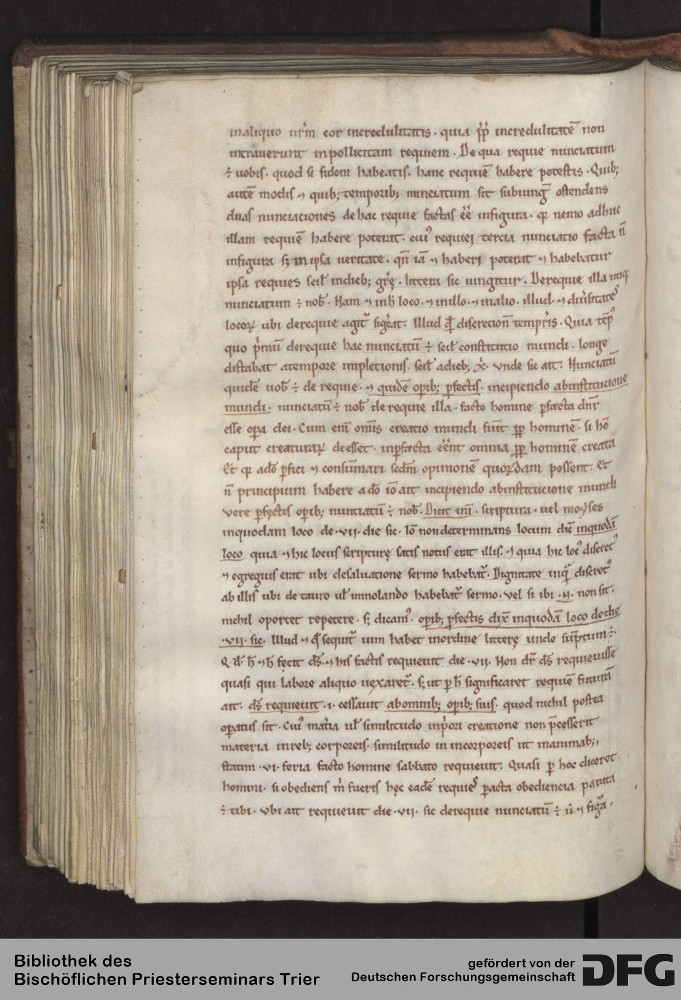 inaliquo urm̄ cor incredulitatis · quia ꝓp̄ incredulitatē non
intrauerunt inpollicitam requiem · De qua requie nunciatum
÷ uobis · quod si fidem habeatis · hanc requiē habere potestis · Quib;
autē modis ⁊ quib; temporib; nunciatum sit subiung̃ ostendens
duas nunciaciones de hac requie factas eē̄ infigura · q̄ nemo adhuc
illam requiē habere poterat · cui᾽ requiei tercia nunciatio facta n̄
infigura sȝ in ipsa ueritate · qn̄ iā ⁊ haberi poterit ⁊ habebatur
ipsa requies scil̄ indieb; gr̄ę · littera sic iungitur · Derequie illa
nunciatum ÷ nob̄ · Nam ⁊ inh̄ loco · ⁊ inillo · ⁊ inalio · illud · ⁊ diuersitatē
locoꝝ ubi derequie agit᾽ · Illud discretionē temp̄ris · Quia tēp᾽
quo p̄mū derequie hac nunciatū ÷ scil̄ constitutio mundi · longe
distabat atempore impletionis · scil̄ adieb; x̄ · Vnde sic ait · Nunciatū
quidē nob̄ ÷ de requie · ⁊ quidē opib; ꝑfectis · incipiendo abinstitucione
mundi · nunciatū ÷ nob̄ de requie illa · facto homine ꝑfecta dn̄r
esse opera dei · Cum enī om̄is creatio mundi sit ꝓp̄ hominē · si hō
caput creaturaꝝ deesset · inꝑfecta eēnt omnia ꝓp̄ hominē creata
Et q̄ adō ꝑfici ⁊ consūmari scdm̄ opinionē quordam possent · Et
n̄ principium habere adō iō ait incipiendo abinstitucione mundi
Vere ꝑfectis opib; nunciatū ÷ nob̄ · Dicit enī · scriptura · uel moyses
inquodam loco de · vii · die sic · Iō non determinans locum dic̄ inquodā
loco quia ⁊ hic locus scripturę satis notus erat illis · ⁊ quia hic loc᾽ discret᾽
⁊ egregius erat ubi desaluatione sermo habebat᾽ · Dignitate inq̄ discret᾽
ab illis ubi de tauro ul᾽ immolando habebat᾽ sermo · Vel si ibi · ⁊ · non sit ·
nichil oportet repetere · sȝ dicam᾽ · opib; ꝑfectis dix̄ inquodā loco dedie
· vii · sic · Illud ⁊ q̄ sequit᾽ uim habet inordine litterę unde sūptum ÷ ·
Q d̄ h̄ ⁊ h̄ fecit ds̄ · ⁊ his factis requieuit die · vii · Non dr̄ ds̄ requieuisse
quasi qui labore aliquo uexaret᾽ · sȝ ut ꝑ h̄ significaret requiē futurā
ait · ds̄ requieuit · i · cessauit abomnib; opib; suis · quod nichil postea
operatus sit · Cui᾽ mat̄ia ul᾽ similitudo inp̄ori creatione non p̄cesserit
materia inreb; corporeis · similitudo in incorporeis ut inanimab; ·
statim · vi · feria facto homine sabbato requieuit · Quasi ꝑ hoc diceret
homini · si obediens m̄ fueris hęc eadē requies ꝑacta obediencia parata
÷ tibi · Vbi ait requieuit die · vii · sic derequie nunciatū ÷ ū ⁊ figa ·
Bibliothek des
Bischöflichen Priesterseminars Trier
gefördert von der
Deutschen Forschungsgemeinschaft
DFG